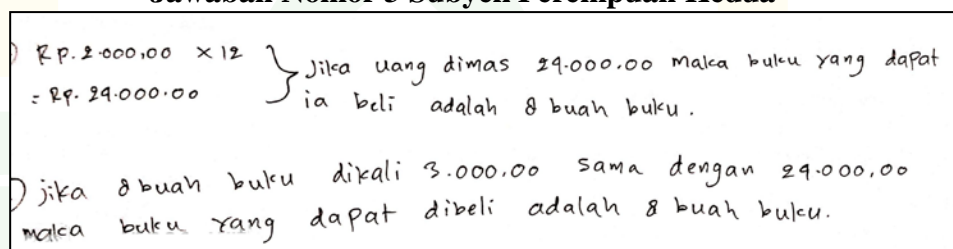 Rp. 2.000,00 × 12
= Rp. 24.000.00
Jika uang dimas 24.000.00 maka buku yang dapat
ia beli adalah 8 buah buku.
jika 8 buah buku dikali 3.000,00 sama dengan 24.000,00
maka buku yang dapat dibeli adalah 8 buah buku.